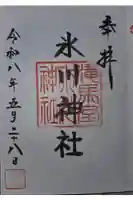 奉拝
氷川神社
令和八年五月二十八日